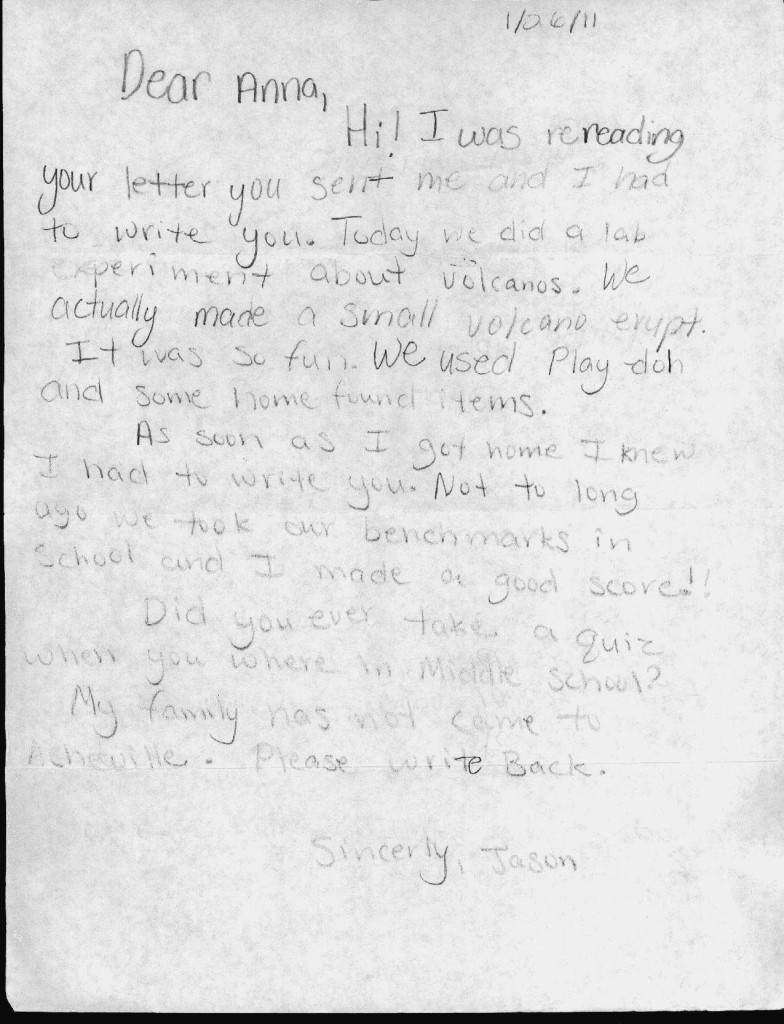 1/26/11
Dear Anna,
Hi! I was rereading
your letter you sent me and I had
to write you. Today we did a lab
experiment about volcanos. We
actually made a small volcano erypt.
It was so fun. We used Play-doh
and some home found items.
As soon as I got home I knew
I had to write you. Not to long
ago we took our benchmarks in
School and I made a good score!!
Did you ever take a quiz
when you where in Middle school?
My family has not came to
Asheville. Please write Back.
Sincerly, Jason